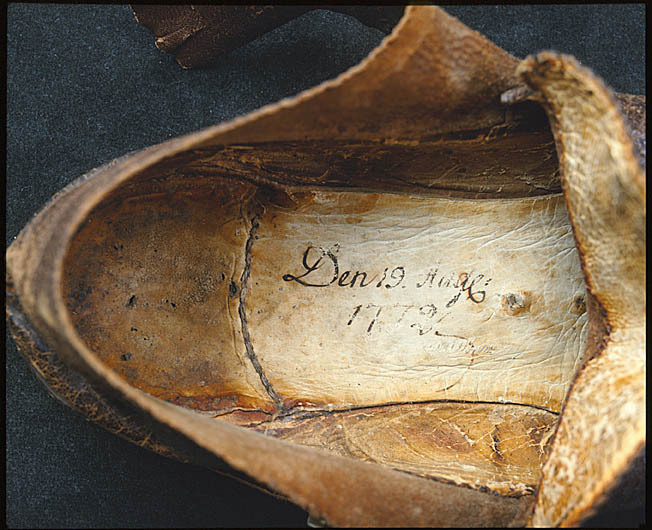 Den 19. Aug:
1772